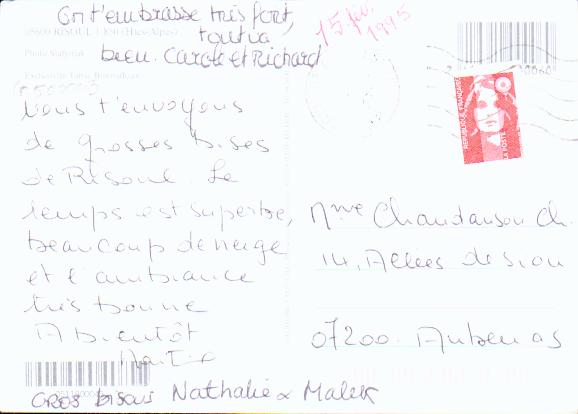 On t'embrasse très fort,
tout va
bien. Carole et Richard
15 fév.
1995
05600 RISOUL 1 850 (Htes-Alpes)
Nous t'envoyons
de grosses bises
de Risoul. Le
temps est superbe,
beaucoup de neige
et l'ambiance
très bonne
A bientôt
GROS bisous Nathalie & Malek
REPUBLIQUE FRANÇAISE
LA POSTE
Mme Chaudanson Ch.
14, Allées de Sion
07200. Aubenas